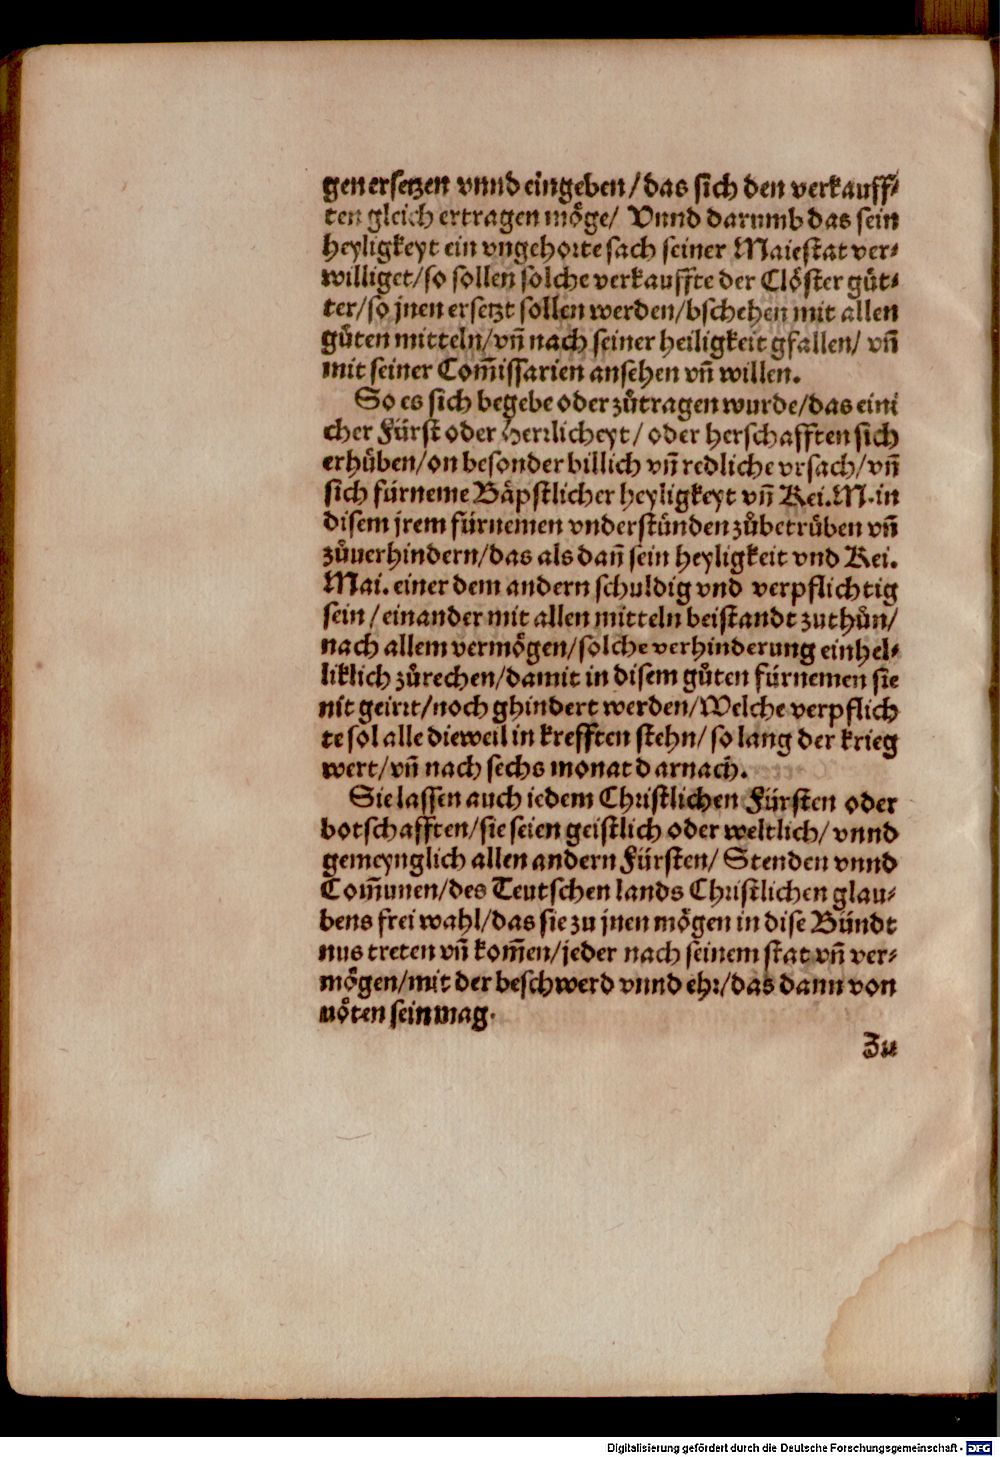 gen ersetzen vnnd eingeben/das sich den verkauff⸗
ten gleich ertragen möge/ Vnnd darumb das sein
heyligkeyt ein vngehorte sach seiner Maiestat ver⸗
williget/so sollen solche verkauffte der Clöster guͤt⸗
ter/so jnen ersetzt sollen werden/bschehen mit allen
guͦten mitteln/vñ nach seiner heiligkeit gfallen/ vñ
mit seiner Com̃issarien ansehen vñ willen.
So es sich begebe oder zuͦtragen wurde/das eini
cher Fürst oder Herrlicheyt/ oder herschafften sich
erhuͤben/on besonder billich vñ redliche vrsach/vñ
sich fürneme Bäpstlicher heyligkeyt vñ Kei.M.in
disem jrem fürnemen vnderstünden zuͦbetruͤben vñ
zuͦuerhindern/das als dañ sein heyligkeit vnd Kei.
Mai. einer dem andern schuldig vnd verpflichtig
sein/einander mit allen mitteln beistandt zuthuͦn/
nach allem vermögen/solche verhinderung einhel⸗
liklich zuͦrechen/damit in disem guͦten fürnemen sie
nit geirrt/noch ghindert werden/Welche verpflich
te sol alle dieweil in krefften stehn/so lang der krieg
wert/vñ nach sechs monat darnach.
Sie lassen auch iedem Christlichen Fürsten oder
botschafften/sie seien geistlich oder weltlich/vnnd
gemeynglich allen andern Fürsten/ Stenden vnnd
Com̃unen/des Teutschen lands Christlichen glau⸗
bens frei wahl/das sie zu jnen mögen in dise Bündt
nus treten vñ kom̃en/jeder nach seinem stat vñ ver⸗
mögen/mit der beschwerd vnnd ehr/das dann von
nöten sein mag.
Zu
Digitalisierung gefördert durch die Deutsche Forschungsgemeinschaft - DFG